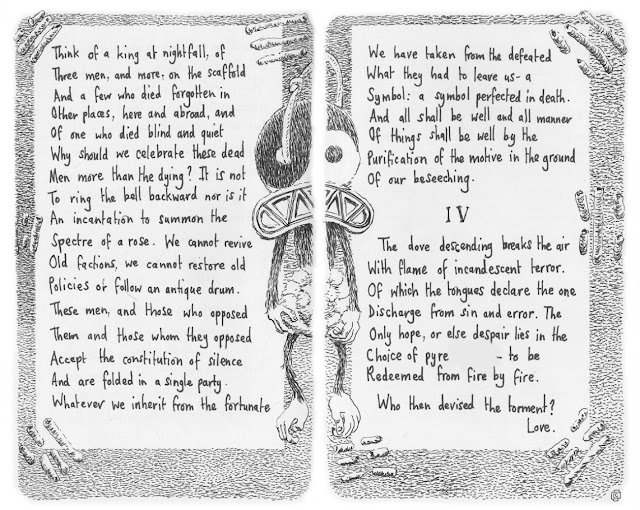 Think of a king at nightfall, of
Three men, and more, on the scaffold
And a few who died forgotten in
Other places, here and abroad, and
Of one who died blind and quiet
Why should we celebrate these dead
Men more than the dying? It is not
To ring the bell backward nor is it
An incantation to summon the
Spectre of a rose. We cannot revive
Old factions, we cannot restore old
Policies or follow an antique drum.
These men, and those who opposed
Them and those whom they opposed
Accept the constitution of silence
And are folded in a single party.
Whatever we inherit from the fortunate
We have taken from the defeated
What they had to leave us - a
Symbol: a symbol perfected in death.
And all shall be well and all manner
Of things shall be well by the
Purification of the motive in the ground
Of our beseeching.
IV
The dove descending breaks the air
With flame of incandescent terror.
Of which the tongues declare the one
Discharge from sin and error. The
Only hope, or else despair lies in the
Choice of pyre - to be
Redeemed from fire by fire.
Who then devised the torment?
Love.